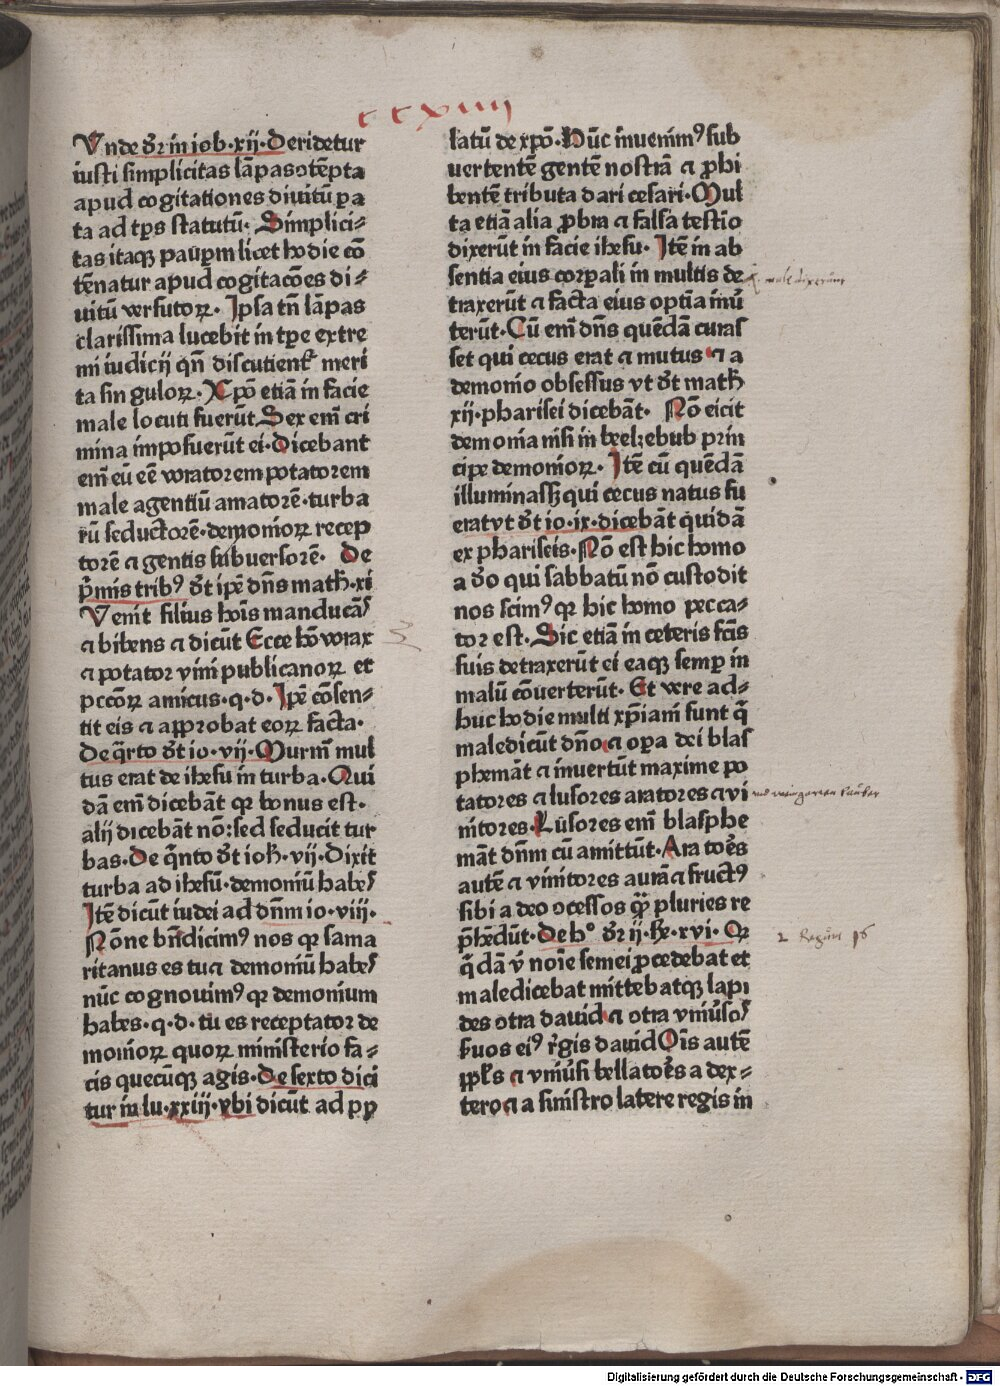 ccxiiii
Vnde dr̄ in iob·xij·Deridetur
iusti simplicitas lāpas ɔtēpta
apud cogitationes diuitū ꝑa
ta ad tp̄s statutū· Simplici⸗
tas itaqꝫ pauꝑm licet hodie cō
tēnatur apud cogitacōes di⸗
uitū versutoꝝ· Ipsa tn̄ lāpas
clarissima lucebit in tp̄e extre
mi iudicij qn̄ discutient᷑ meri
ta singuloꝝ· Xp̄o etiā in facie
male locuti fuerūt Sex em̄ cri
mina imposuerūt ei·Dicebant
em̄ eū eē voratorem potatorem
male agentiū amatorē·turba
rū seductorē·demonioꝝ recep
torē ⁊ gentis subuersorē· De
p̄mis tribꝰ dt̄ ip̄e dn̄s math̄·xi
Venit filius hoīs manducās
⁊ bibens ⁊ dicūt Ecce hō vorax
⁊ potator vini publicanoꝝ et
pccōꝝ amicus·q·d·Ip̄e cōsen⸗
tit eis ⁊ approbat eoꝝ facta·
De q̄rto dt̄ io·vij·Murmī mul
tus erat de ihesu in turba·Qui
dā em̄ dicebāt qꝛ bonus est·
alij dicebāt nō:sed seducit tur
bas·De q̄nto dt̄ ioh̄·vij·Dixit
turba ad ihesū·demoniū habes
Itē dicūt iudei ad dn̄m io·viij·
Nōne bn̄dicimꝰ nos qꝛ sama
ritanus es tu ⁊ demoniū habes
nūc cognouimꝰ qꝛ demonium
habes·q·d·tu es receptator de
monioꝝ quoꝝ ministerio fa⸗
cis quecūqꝫ agis·De sexto dici
tur in lu·xxiij·vbi dicūt ad pp
latū de xp̄o·Hūc inuenimꝰ sub
uertentē gentē nostrā ⁊ ꝓhi
bentē tributa dari cesari·Mul
ta etiā alia ꝓbra ⁊ falsa testīo
dixerūt in facie ihesu·Itē in ab
sentia eius corꝑali in multis de
traxerūt ⁊ facta eius optīa īmū
terūt·Cū em̄ dn̄s quēdā curas
set qui cecus erat ⁊ mutus ⁊ a
demonio obsessus vt dt̄ math̄
xij·pharisei dicebāt· Nō eicit
demonia nisi in beelzebub prin
cipe demonioꝝ· Itē cū quēdā
illuminassꝫ qui cecus natus fu
erat vt dt̄ io·ix·dicebāt quidā
ex phariseis·Nō est hic homo
a deo qui sabbatū nō custodit
nos scimꝰ qꝛ hic homo pecca⸗
tor est·Sic etiā in ceteris fcīs
suis detraxerūt ei eaqꝫ semꝑ in
malū cōuerterūt· Et vere ad⸗
huc hodie multi xp̄iani sunt q̄
maledicūt dn̄o ⁊ oꝑa dei blas
phemāt ⁊ inuertūt maxime po
tatores ⁊ lusores aratores ⁊ vi
nitores·Lūsores em̄ blasphe
māt dn̄m cū amittūt·Aratoēs
autē ⁊ vinitores aurā ⁊ fructꝰ
sibi a deo ɔcessos qꝛ pluries re
p̄hēdūt·De hº dr̄ ij·Re·xvi· Qꝛ
q̄dā vº noīe semei ꝓcedebat et
maledicebat mittebatqꝫ lapi
des ɔtra dauid ⁊ ɔtra vniūsos
ẜuos eiꝰ rēgis dauid Oīs autē
ppl̄s ⁊ vniūsi bellatoēs a dex⸗
tero ⁊ a sinistro latere regis in
male dixerunt
2 Regum 16